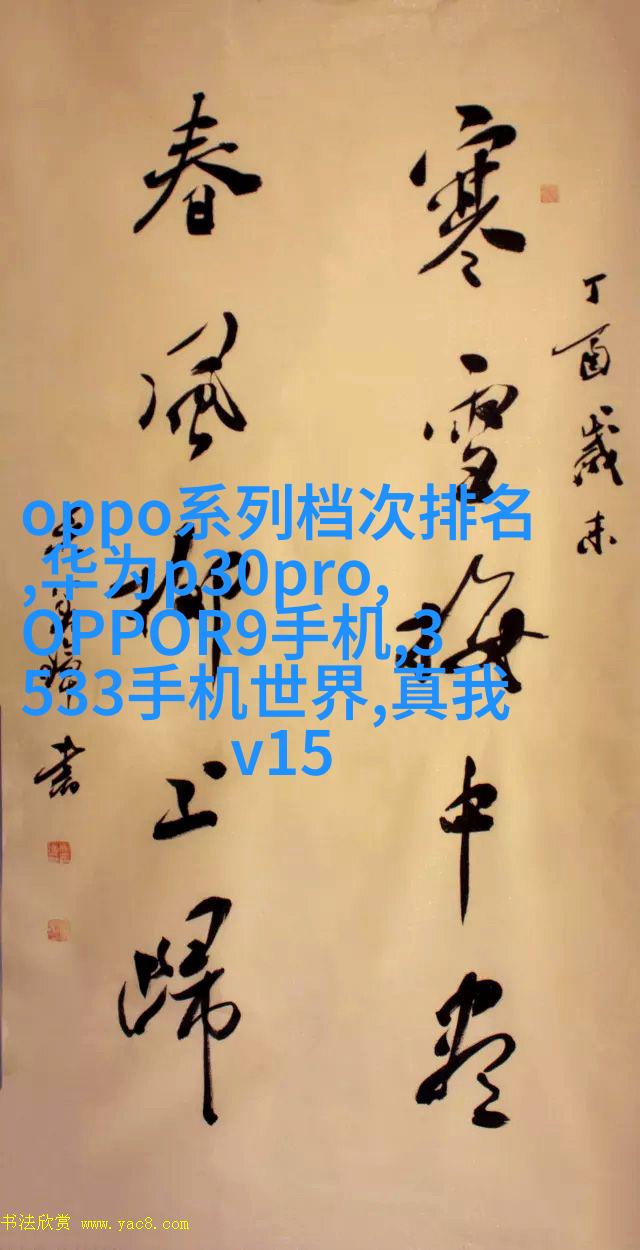 丁酉歲末
寒雪梅中盡
春風柳上歸
書
oppo系列档次排名
,华为p30pro,
OPPOR9手机,3
533手机世界,真我
v15
书法欣赏 www.yac8.com